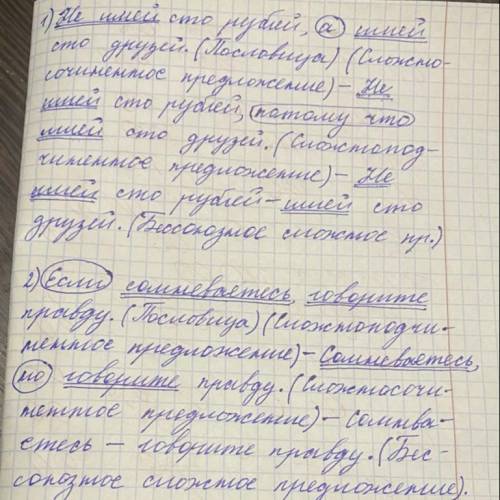 1) Не имей сто рублей, а имей
сто друзей. (Пословица) (Сложно-
сочиненное предложение) – Не
имей сто рублей, (потому что
имей сто друзей. (Сложнопод-
чиненное предложение) – Не
имей сто рублей – имей сто
друзей. (Бессоюзное сложное пр.)
2) Если сомневаетесь, говорите
правду. (Пословица) (Сложноподчи-
ненное предложение) – Сомневаетесь,
но говорите правду. (Сложносочи-
ненное предложение) – Сомнева-
етесь – говорите правду. (Бес-
союзное сложное предложение).